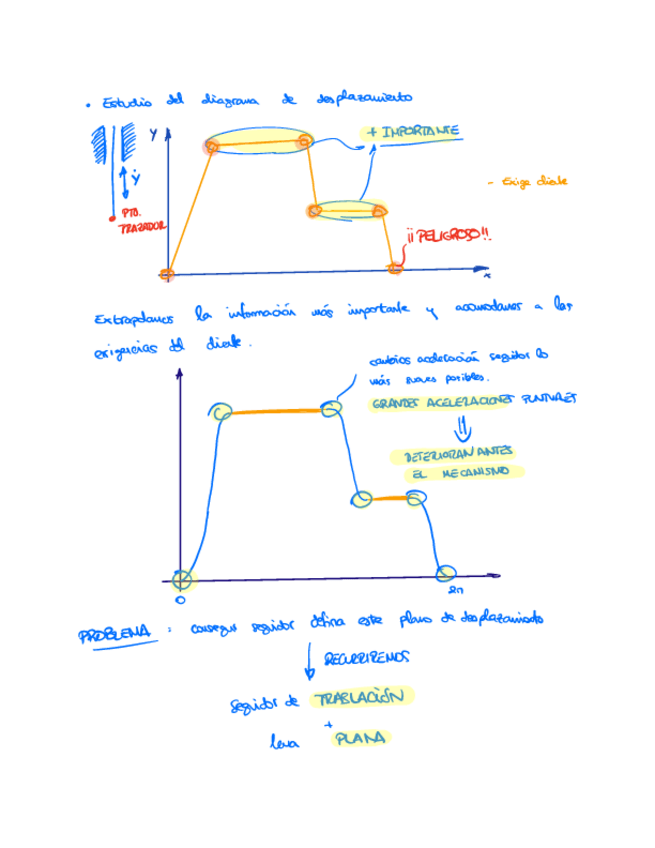 • Estudio del diagrama de desplazamiento
Y
+ IMPORTANTE
ẏ
- Exige cliente
PTO.
TRAZADOR
¡¡PELIGROSO!!
x
Extrapolamos la información más importante y acomodamos a las
exigencias del cliente.
cambios aceleración seguidor lo
más suaves posibles.
GRANDES ACELERACIONES PUNTUALES
⇓
DETERIORAN ANTES
EL MECANISMO
0
2π
PROBLEMA : conseguir seguidor defina este plano de desplazamiento
↓ RECURRIREMOS
seguidor de TRASLACIÓN
+
leva PLANA